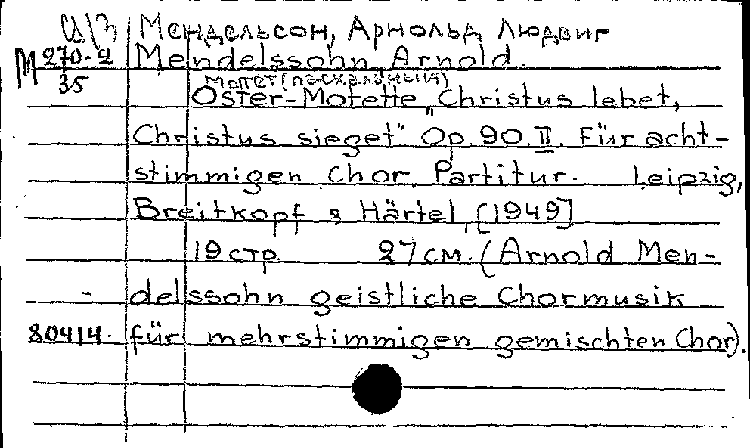 Мендельсон, Арнольд Людвиг
М 270-2 Mendelssohn, Arnold.
35 Мотет (пасхальный)
Oster-Motette "Christus lebet,
Christus sieget" Op. 90. II. Für acht-
stimmigen Chor. Partitur. Leipzig,
Breitkopf & Härtel, [1949]
19 стр 27 см. (Arnold Men-
delssohn geistliche Chormusik
80414. für mehrstimmigen gemischten Chor).